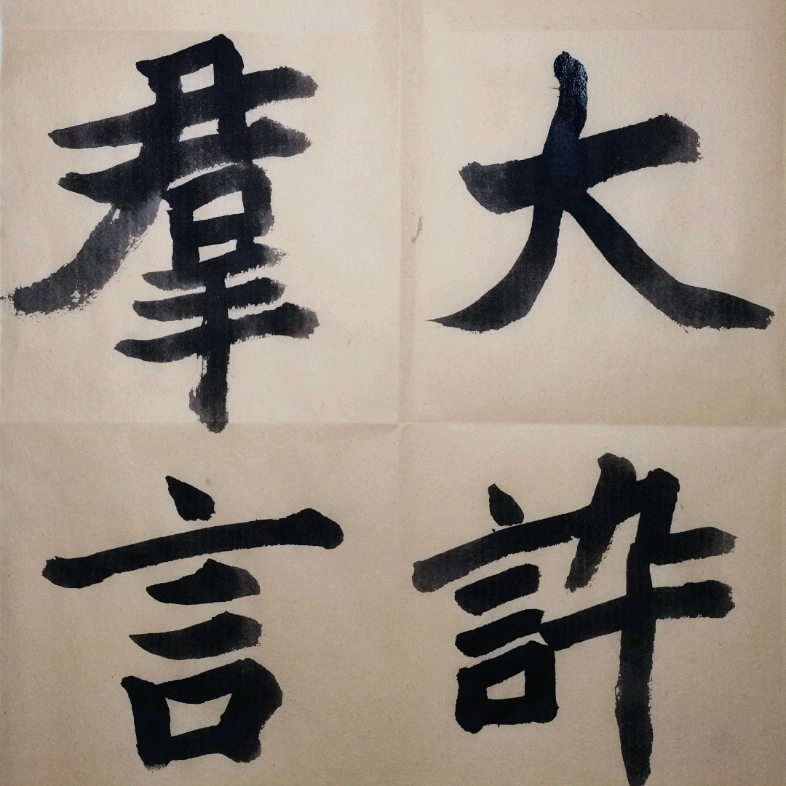 大許
羣言